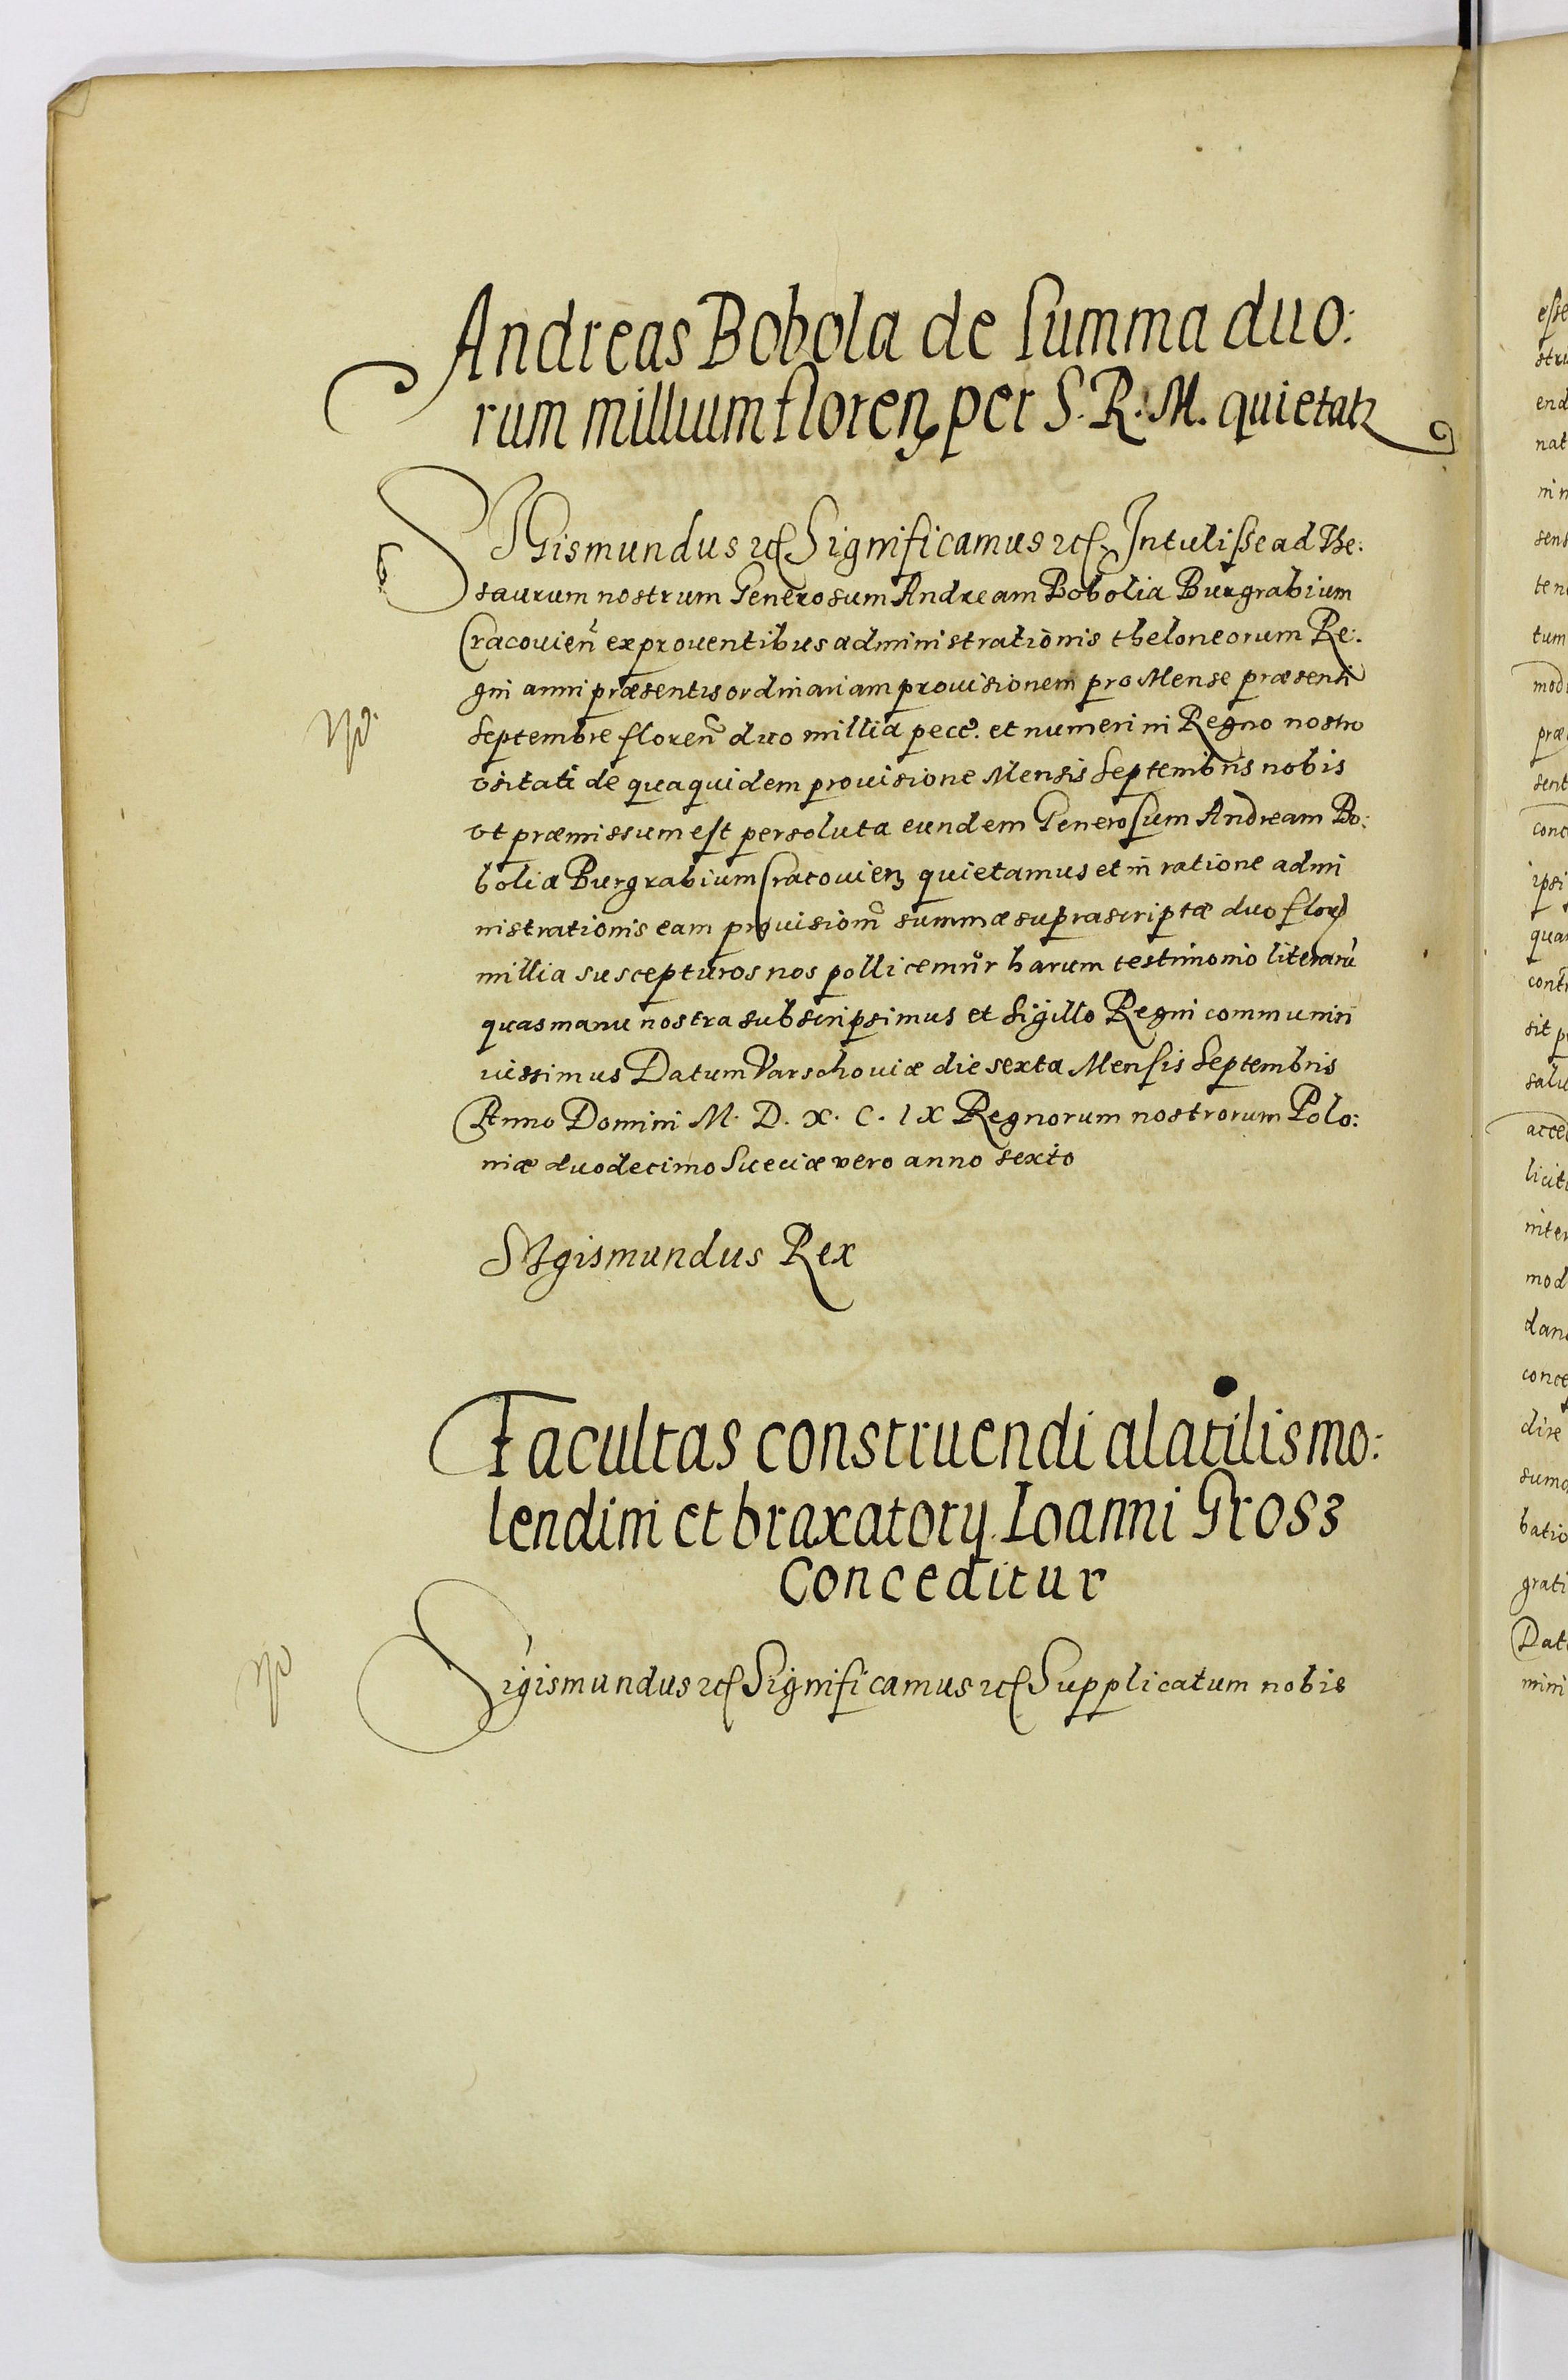 Andreas Bobola de summa duo:
rum millium florenꝫ per S. R. M. quietatꝛ
SIGismundus ꝛc Significamus ꝛc Intulisse ad The:
saurum nostrum Generosum Andream Bobolia Burgrabium
Cracovien̄ ex proventibus administrationis theloneorum Re:
gni anni præsentis ordinariam provisionem pro Mense præsenti
Septembre floren̄ duo millia pecc̄. et numeri in Regno nostro
vsitati de qua quidem provisione Mensis Septembris nobis
vt præmissum est persoluta eundem Generosum Andream Bo:
bolia Burgrabium Cracovienꝫ quietamus et in ratione admi
nistrationis eam provisionē summæ suprascriptæ duo flor
millia suscepturos nos pollicemur harum testimonio literarū
quas manu nostra subscripsimus et Sigillo Regni communiri
iussimus Datum Varschoviæ die sexta Mensis Septembris
Anno Domini M. D. X. C. IX Regnorum nostrorum Polo:
niæ duodecimo Sueciæ vero anno sexto
SIgismundus Rex
Facultas construendi alatilis mo:
lendini et braxatorij Ioanni Grosz
Conceditur
Sigismundus ꝛc Significamus ꝛc Supplicatum nobis